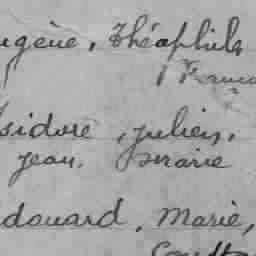 ugène, Théophile
Franç
sidore, julien,
jean. marie
douard, Marie,
Consta